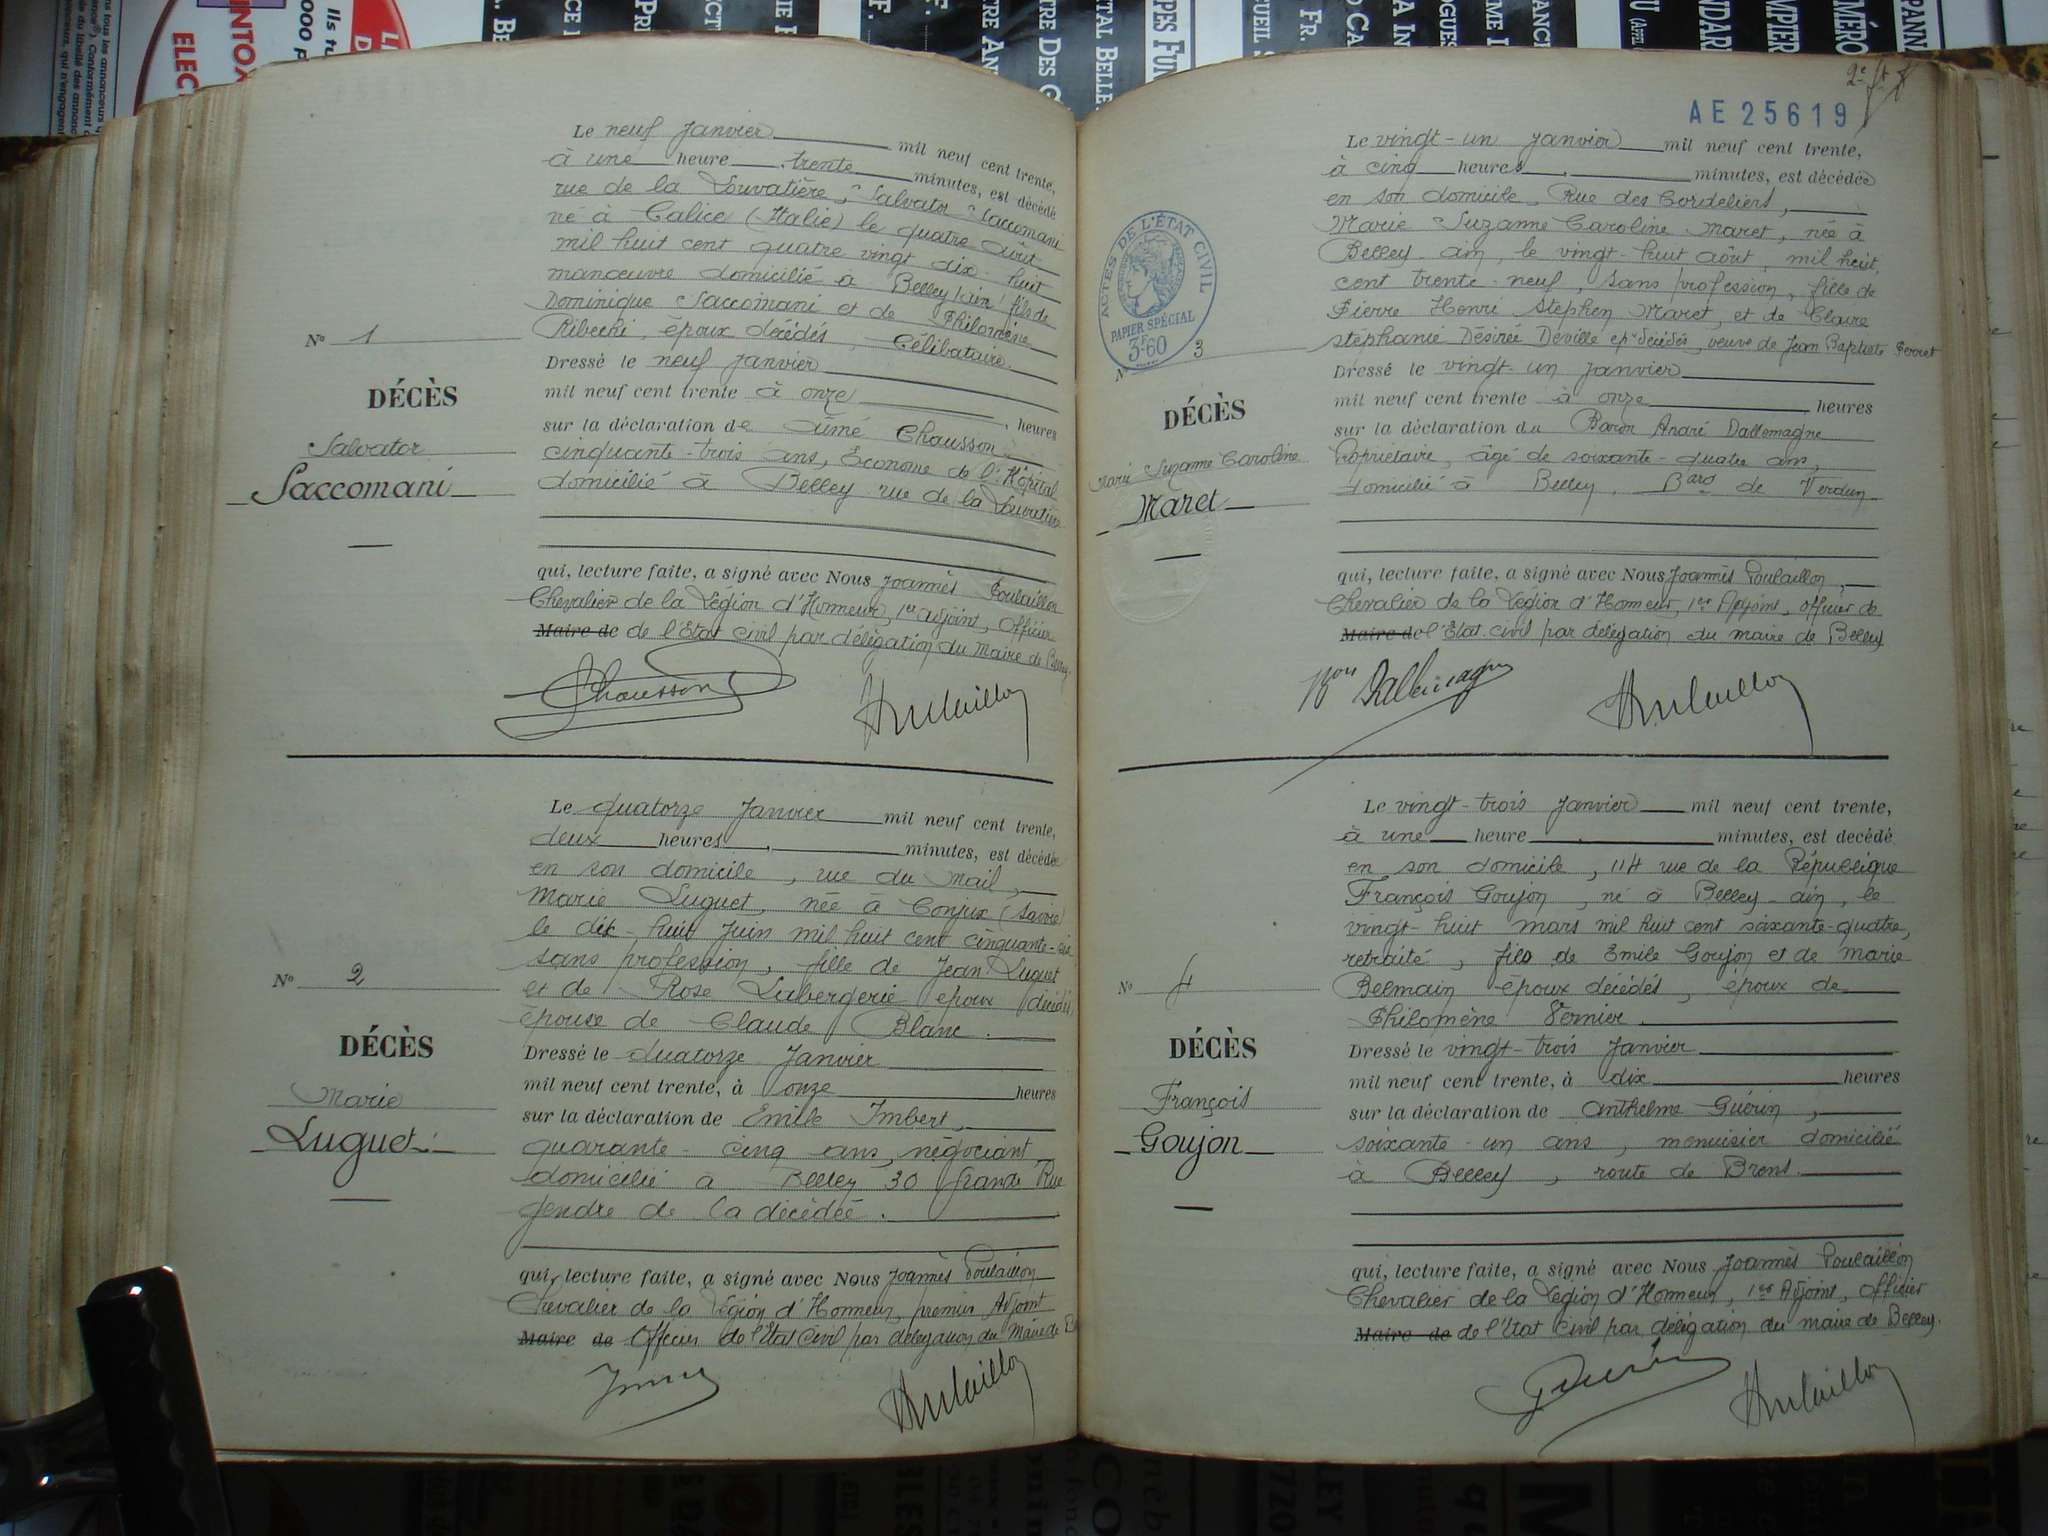 Le neuf Janvier mil neuf cent trente,
à une heure trente minutes, est décédé
rue de la Louvatière, Salvator Saccomani
né à Calice (Italie) le quatre août
mil huit cent quatre vingt dix-huit
manœuvre domicilié à Belley (Ain) fils de
Dominique Saccomani et de Philomène
Ribechi, époux décédés, Célibataire.
Nº 1
DÉCÈS
Salvator
Saccomani
Dressé le neuf janvier
mil neuf cent trente à onze, heures
sur la déclaration de Aimé Chausson
cinquante-trois ans, Econome de l'Hôpital
domicilié à Belley rue de la Louvatière
qui, lecture faite, a signé avec Nous Joannès Poulaillon
Chevalier de la Légion d'Honneur, 1er adjoint, Officier
Maire de de l'Etat civil par délégation du Maire de Belley
Chausson Poulaillon
Le quatorze Janvier mil neuf cent trente,
deux heures, minutes, est décédée
en son domicile, rue du Mail,
Marie Luguet, née à Conjux (Savoie)
le dix-huit Juin mil huit cent cinquante-six
sans profession, fille de Jean Luguet
et de Rose Labergerie époux décédés,
épouse de Claude Blanc.
Nº 2
DÉCÈS
Marie
Luguet
Dressé le quatorze Janvier
mil neuf cent trente, à onze heures
sur la déclaration de Emile Imbert,
quarante-cinq ans, négociant
domicilié à Belley 30 Grande Rue
gendre de la décédée.
qui, lecture faite, a signé avec Nous Joannès Poulaillon
Chevalier de la Légion d'Honneur, premier Adjoint
Maire de Officier de l'Etat Civil par délégation du Maire de
Poulaillon
AE 25619
ACTES DE L'ÉTAT CIVIL
PAPIER SPÉCIAL
3F60
Le vingt-un janvier mil neuf cent trente,
à cinq heures, minutes, est décédée
en son domicile, Rue des Cordeliers,
Marie Suzanne Caroline Maret, née à
Belley Ain, le vingt-huit août, mil huit
cent trente-neuf, sans profession, fille de
Pierre Henri Stephen Maret, et de Claire
stéphanie Désirée Deville epx décédés, veuve de Jean Baptiste Perret
Nº 3
DÉCÈS
Marie Suzanne Caroline
Maret
Dressé le vingt-un janvier
mil neuf cent trente à onze, heures
sur la déclaration du Baron André Dallemagne
Propriétaire, âgé de soixante-quatre ans,
domicilié à Belley, Bard de Verdun
qui, lecture faite, a signé avec Nous Joannès Poulaillon,
Chevalier de la Légion d'Honneur, 1er Adjoint, officier de
Maire de l'Etat civil par délégation du maire de Belley
Bon Dallemagne Poulaillon
Le vingt-trois janvier mil neuf cent trente,
à une heure, minutes, est décédé
en son domicile, 114 rue de la République
François Goujon, né à Belley Ain, le
vingt-huit mars mil huit cent soixante-quatre,
retraité, fils de Emile Goujon et de Marie
Belmain époux décédés, époux de
Philomène Vernier.
Nº 4
DÉCÈS
François
Goujon
Dressé le vingt-trois janvier
mil neuf cent trente, à dix heures
sur la déclaration de Anthelme Guérin,
soixante-un ans, menuisier domicilié
à Belley, route de Brens.
qui, lecture faite, a signé avec Nous Joannès Poulaillon
Chevalier de la Légion d'Honneur, 1er Adjoint, Officier
Maire de de l'Etat Civil par délégation du maire de Belley.
Guérin Poulaillon